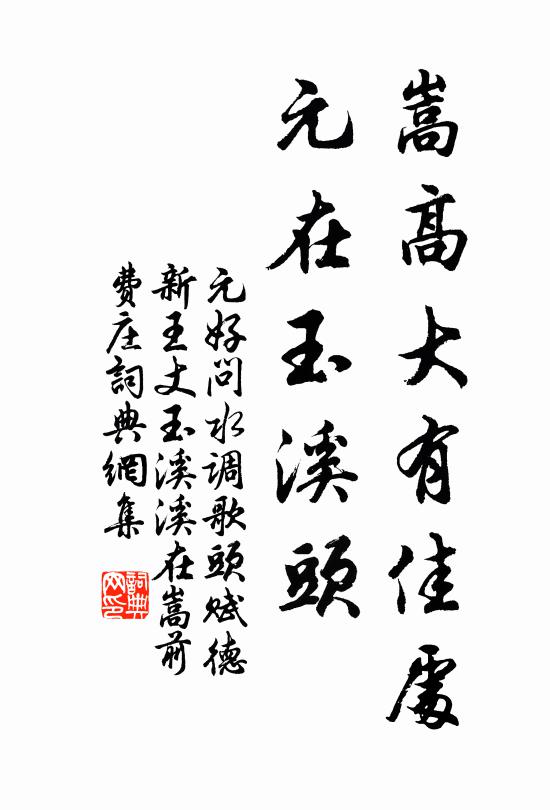 嵩高大有佳處
元在玉溪頭
元好問水調歌頭賦德
新王丈玉溪溪在嵩前
費庄詞典網集
詞典
网印